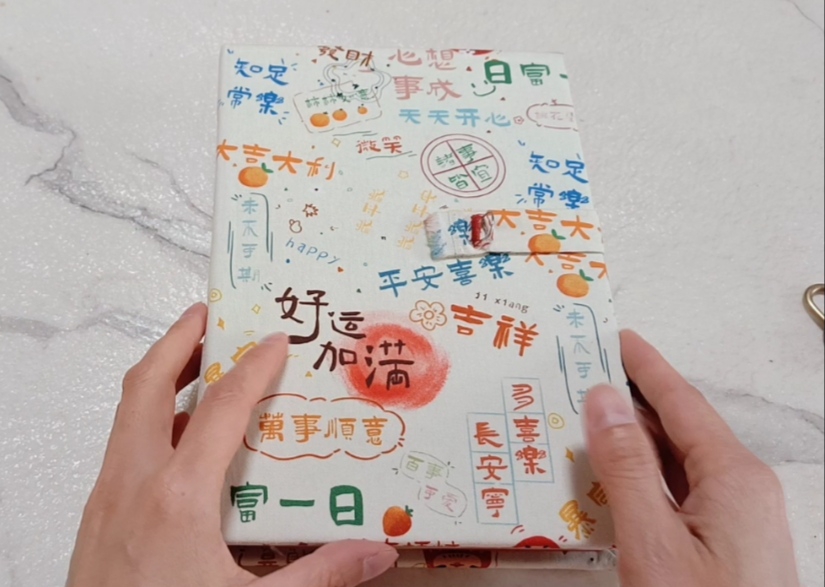 發財
心想
事成
日富一
知足
常樂
天天开心
微笑
諸事
皆宜
知足
常樂
大吉大利
樂
大吉大
大吉大
未
不
可
期
happy
平安喜樂
ji xiang
吉祥
好運
加滿
未
不
可
多喜樂
長安寧
萬事順意
百事
可愛
富一日